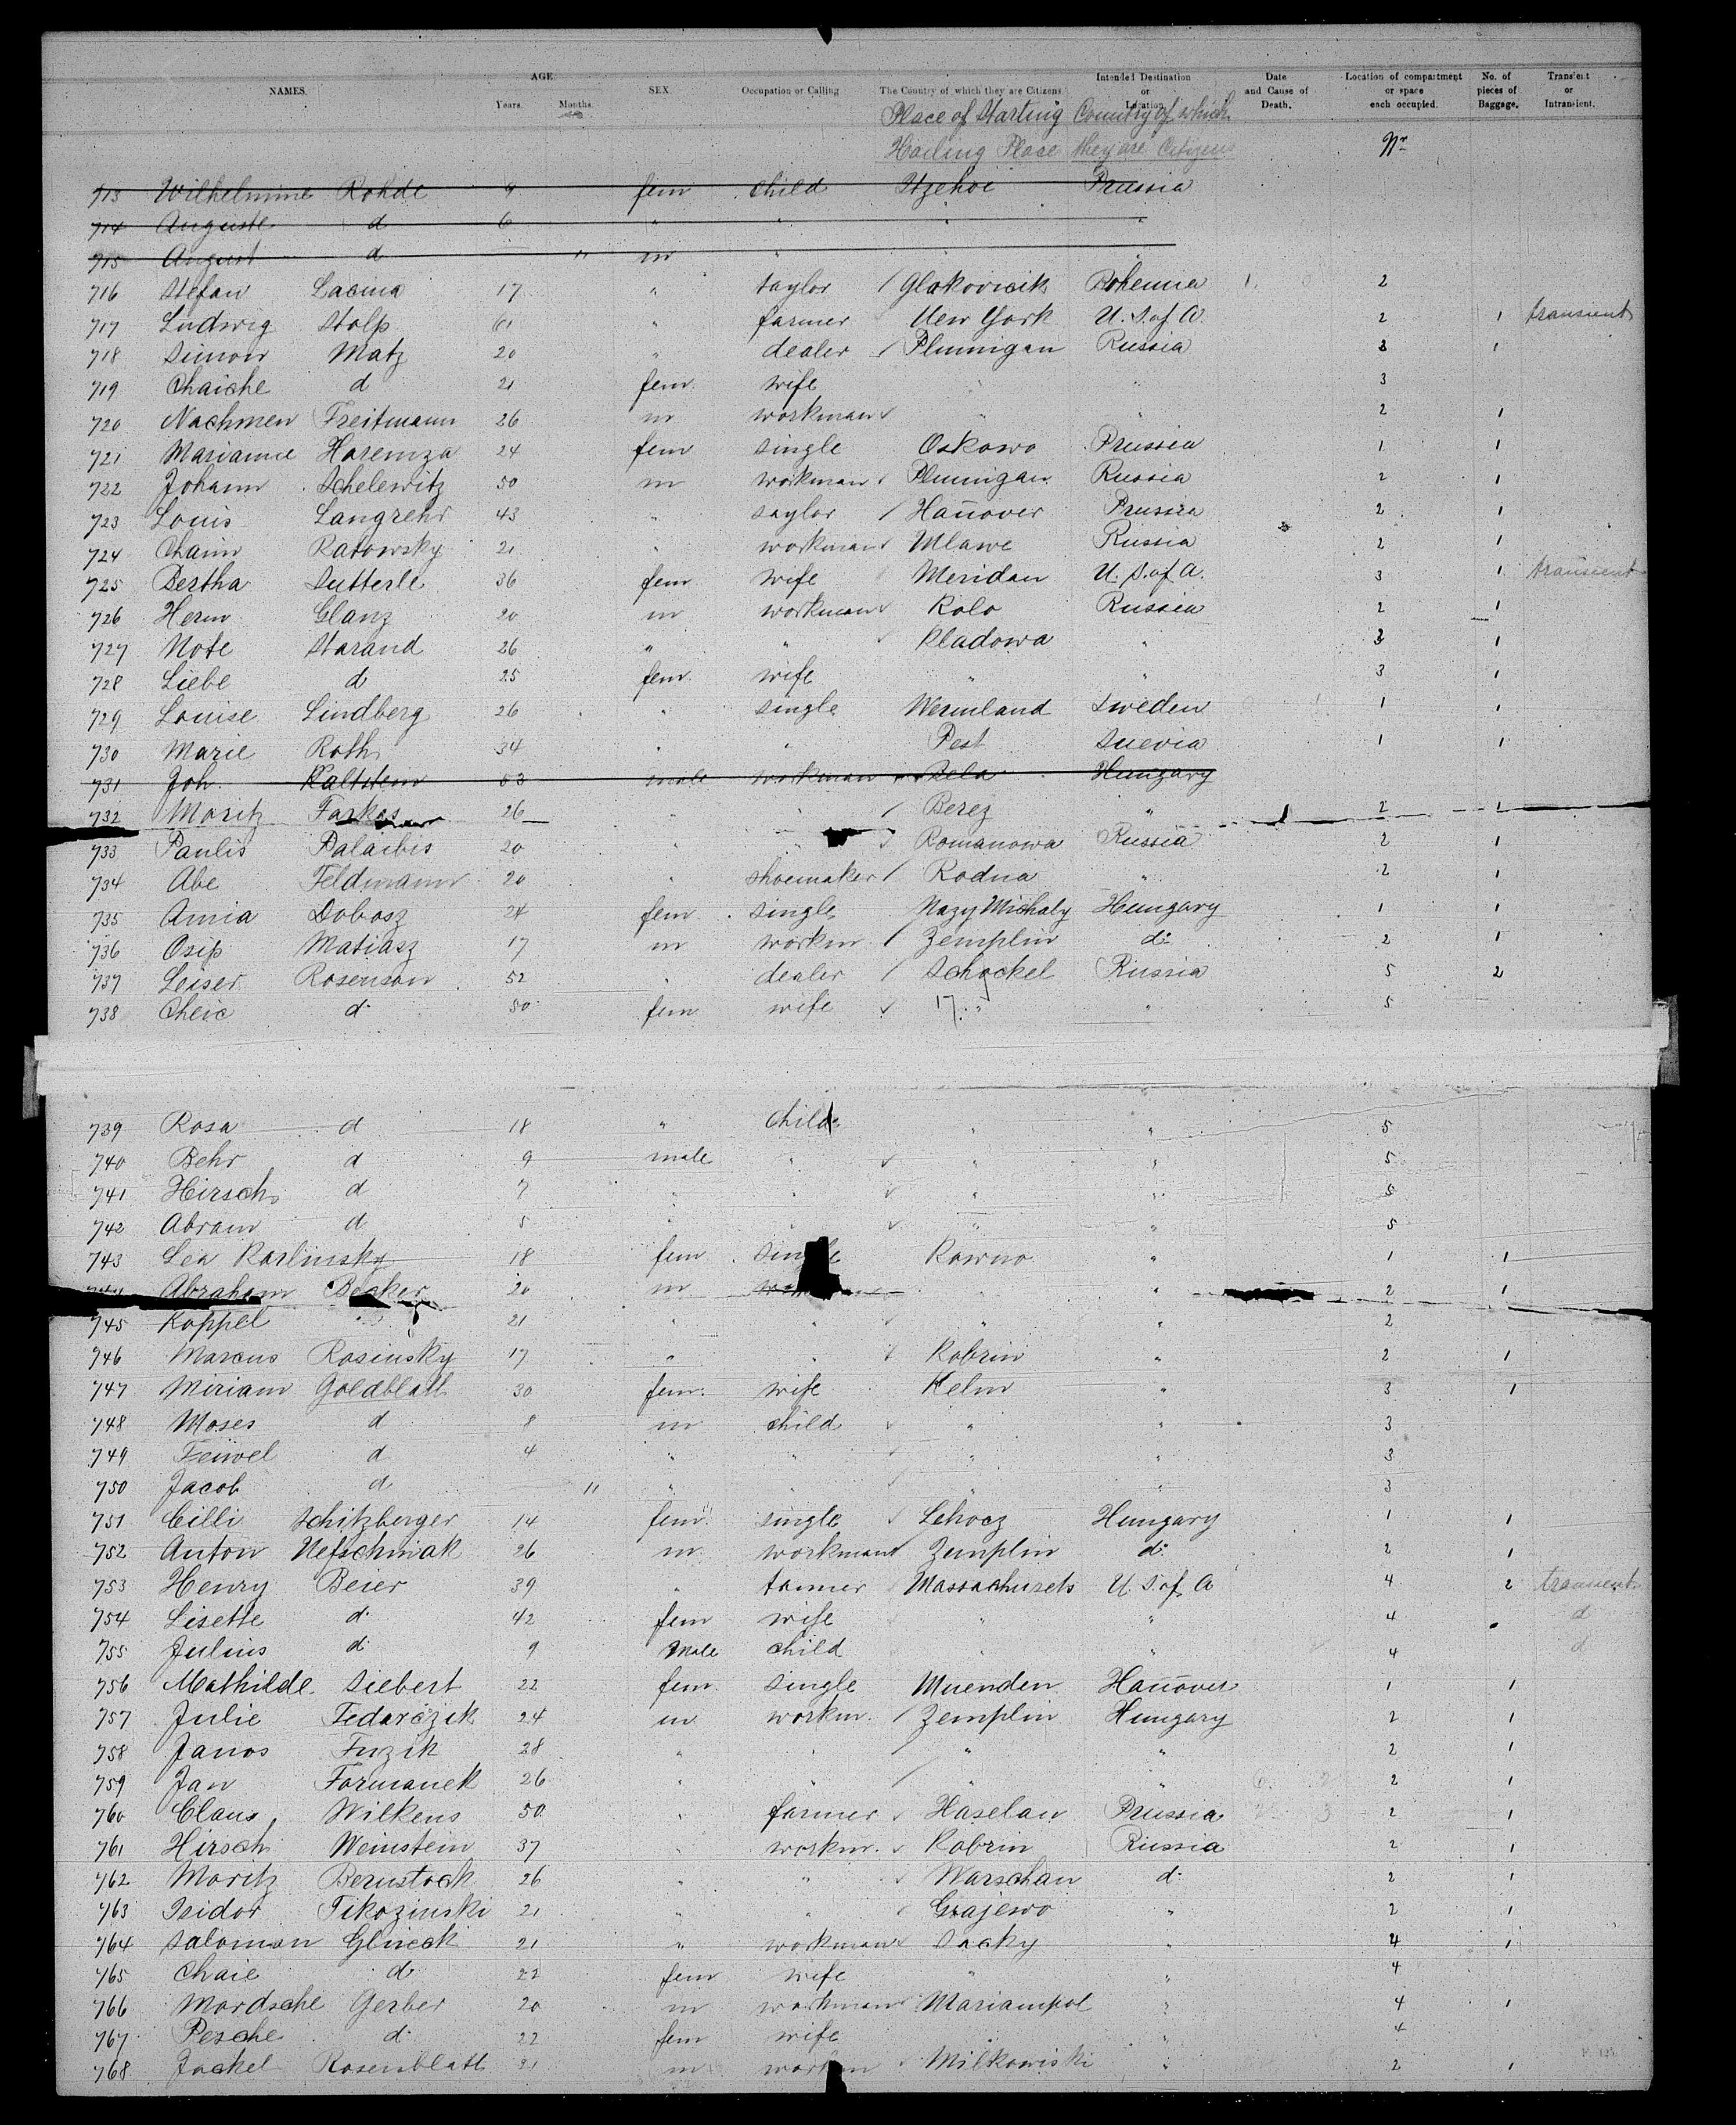 NAMES. AGE. Years. Months. SEX. Occupation or Calling The Country of which they are Citizens Intended Destination or Location Date and Cause of Death. Location of compartment or space each occupied. No. of pieces of Baggage. Transient or Intransient.
Place of Starting Country of which
Hailing Place they are Citizens Nr
713 Wilhelmine Rohde 9 fem child Itzehoe Prussia
714 Auguste d 6 " " " "
715 August d 11 m " " "
716 Stefan Lacina 17 " taylor / Glakovicik Bohemia 2
717 Ludwig Stolp 61 " farmer New York U.S. of A. 2 1 transient
718 Simon Matz 20 " dealer / Plunnigan Russia 3 1
719 Chaiche d 21 fem. wife " " 3
720 Nachmen Freitmann 26 m workman " " 2 1
721 Marianne Haremza 24 fem single Oskowo Prussia 1 1
722 Johann Schelewitz 50 m workman Plunnigan Russia 2 1
723 Louis Langrehr 43 " saylor / Hannover Prussia 2 1
724 Chaim Ratowsky 21 " workman Mlawe Russia 2 1
725 Bertha Sutterle 36 fem wife Meridan U. S. of A. 3 1 transient
726 Herm Glanz 20 m workman Kolo Russia 2 1
727 Note Starand 26 " " Kladowa " 3 1
728 Liebe d 25 fem wife " " 3 1
729 Louise Lindberg 26 " single Wermland Sweden 1 1
730 Marie Roth 34 " " Pest Suevia 1 1
731 Joh. 53 male workman Bela Hungary
732 Moritz Farkas 26 " / Berez " 2 1
733 Paulis Palaibis 20 " " Romanowa Russia 2 1
734 Abe Feldmann 20 " shoemaker / Rodna " 2 1
735 Amia Dobosz 24 fem single Nazy Michaly Hungary 1 1
736 Osip Matiasz 17 m workm / Zemplin d: 2 1
737 Leiser Rosenson 52 " dealer / Schockel Russia 5 2
738 Cheie d 50 fem wife 17. " " 5
739 Rosa d 18 " child " " 5
740 Behr d 9 male " " " 5
741 Hirsch d 7 " " " " 5
742 Abram d 5 " " " " 5
743 Lea Karlinsky 18 fem single Kowno " 1 1
Abraham Becker 20 m " " 2 1
745 Koppel 21 " " " " 2
746 Marcus Rosinsky 17 " " Kobrin " 2 1
747 Miriam Goldblatt 30 fem. wife Kelm " 3 1
748 Moses d 8 m child " " 3
749 Feiwel d 4 " " " " 3
750 Jacob d 11 " " " " 3
751 Cilli Schitzberger 14 fem. single Lehocz Hungary 1 1
752 Anton Nefschniak 26 m. workman Zemplin d: 2 1
753 Henry Beier 39 " tanner Massachusets U. S. of A 4 2 transient
754 Lisette d 42 fem wife " " 4 d
755 Julius d 9 Male child " " 4 d
756 Mathilde Siebert 22 fem. single Muenden Hannover 1 1
757 Julie Fedorczik 24 m workm. / Zemplin Hungary 2 1
758 Janos Fuzik 28 " " / " " 2 1
759 Jan Formanek 26 " " / " " 2 1
760 Claus Wilkens 50 " farmer Haselau Prussia 2 1
761 Hirsch Weinstein 37 " workm. Kobrin Russia 2 1
762 Moritz Bernstock 26 " " Warschau d. 2 1
763 Isidor Tikozinski 21 " " Grajewo " 2 1
764 Salomon Glueck 21 " workman Sacky " 4 1
765 Chaie d 22 fem wife " " 4
766 Mordsche Gerber 20 m workman Mariampol " 4 1
767 Pesche d. 22 fem wife " " 4
768 Jackel Rosenblatt 21 m workm Milkowiski " 2 1